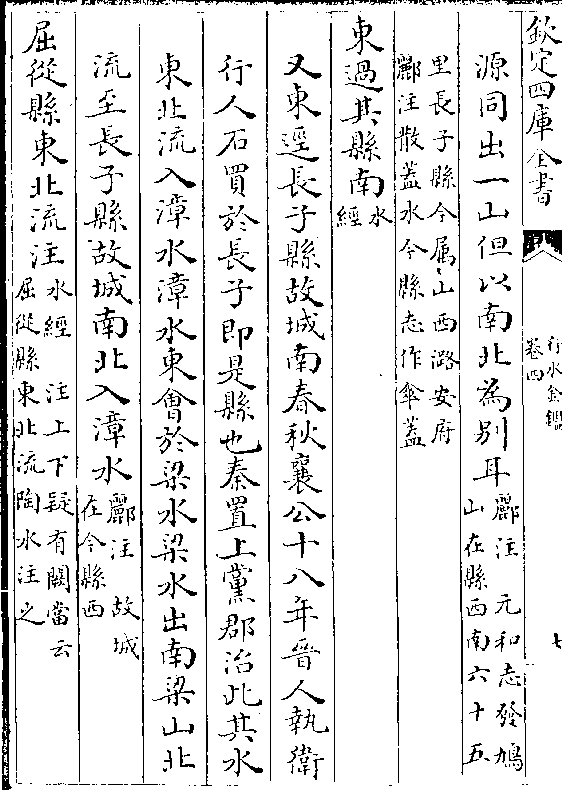 欽定四庫全書
行水金鑑
卷四
七
源同出一山但以南北為別耳酈注 元和志發鳩
山在縣西南六十五
里長子縣今屬山西潞安府
酈注散蓋水今縣志作傘蓋
東過其縣南水
經
又東逕長子縣故城南春秋襄公十八年晉人執衛
行人石買於長子即是縣也秦置上黨郡治此其水
東北流入漳水漳水東會於梁水梁水出南梁山北
流至長子縣故城南北入漳水酈注 故城
在今縣西
屈從縣東北流注水經 注上下疑有闕當云
屈從縣東北流陶水注之